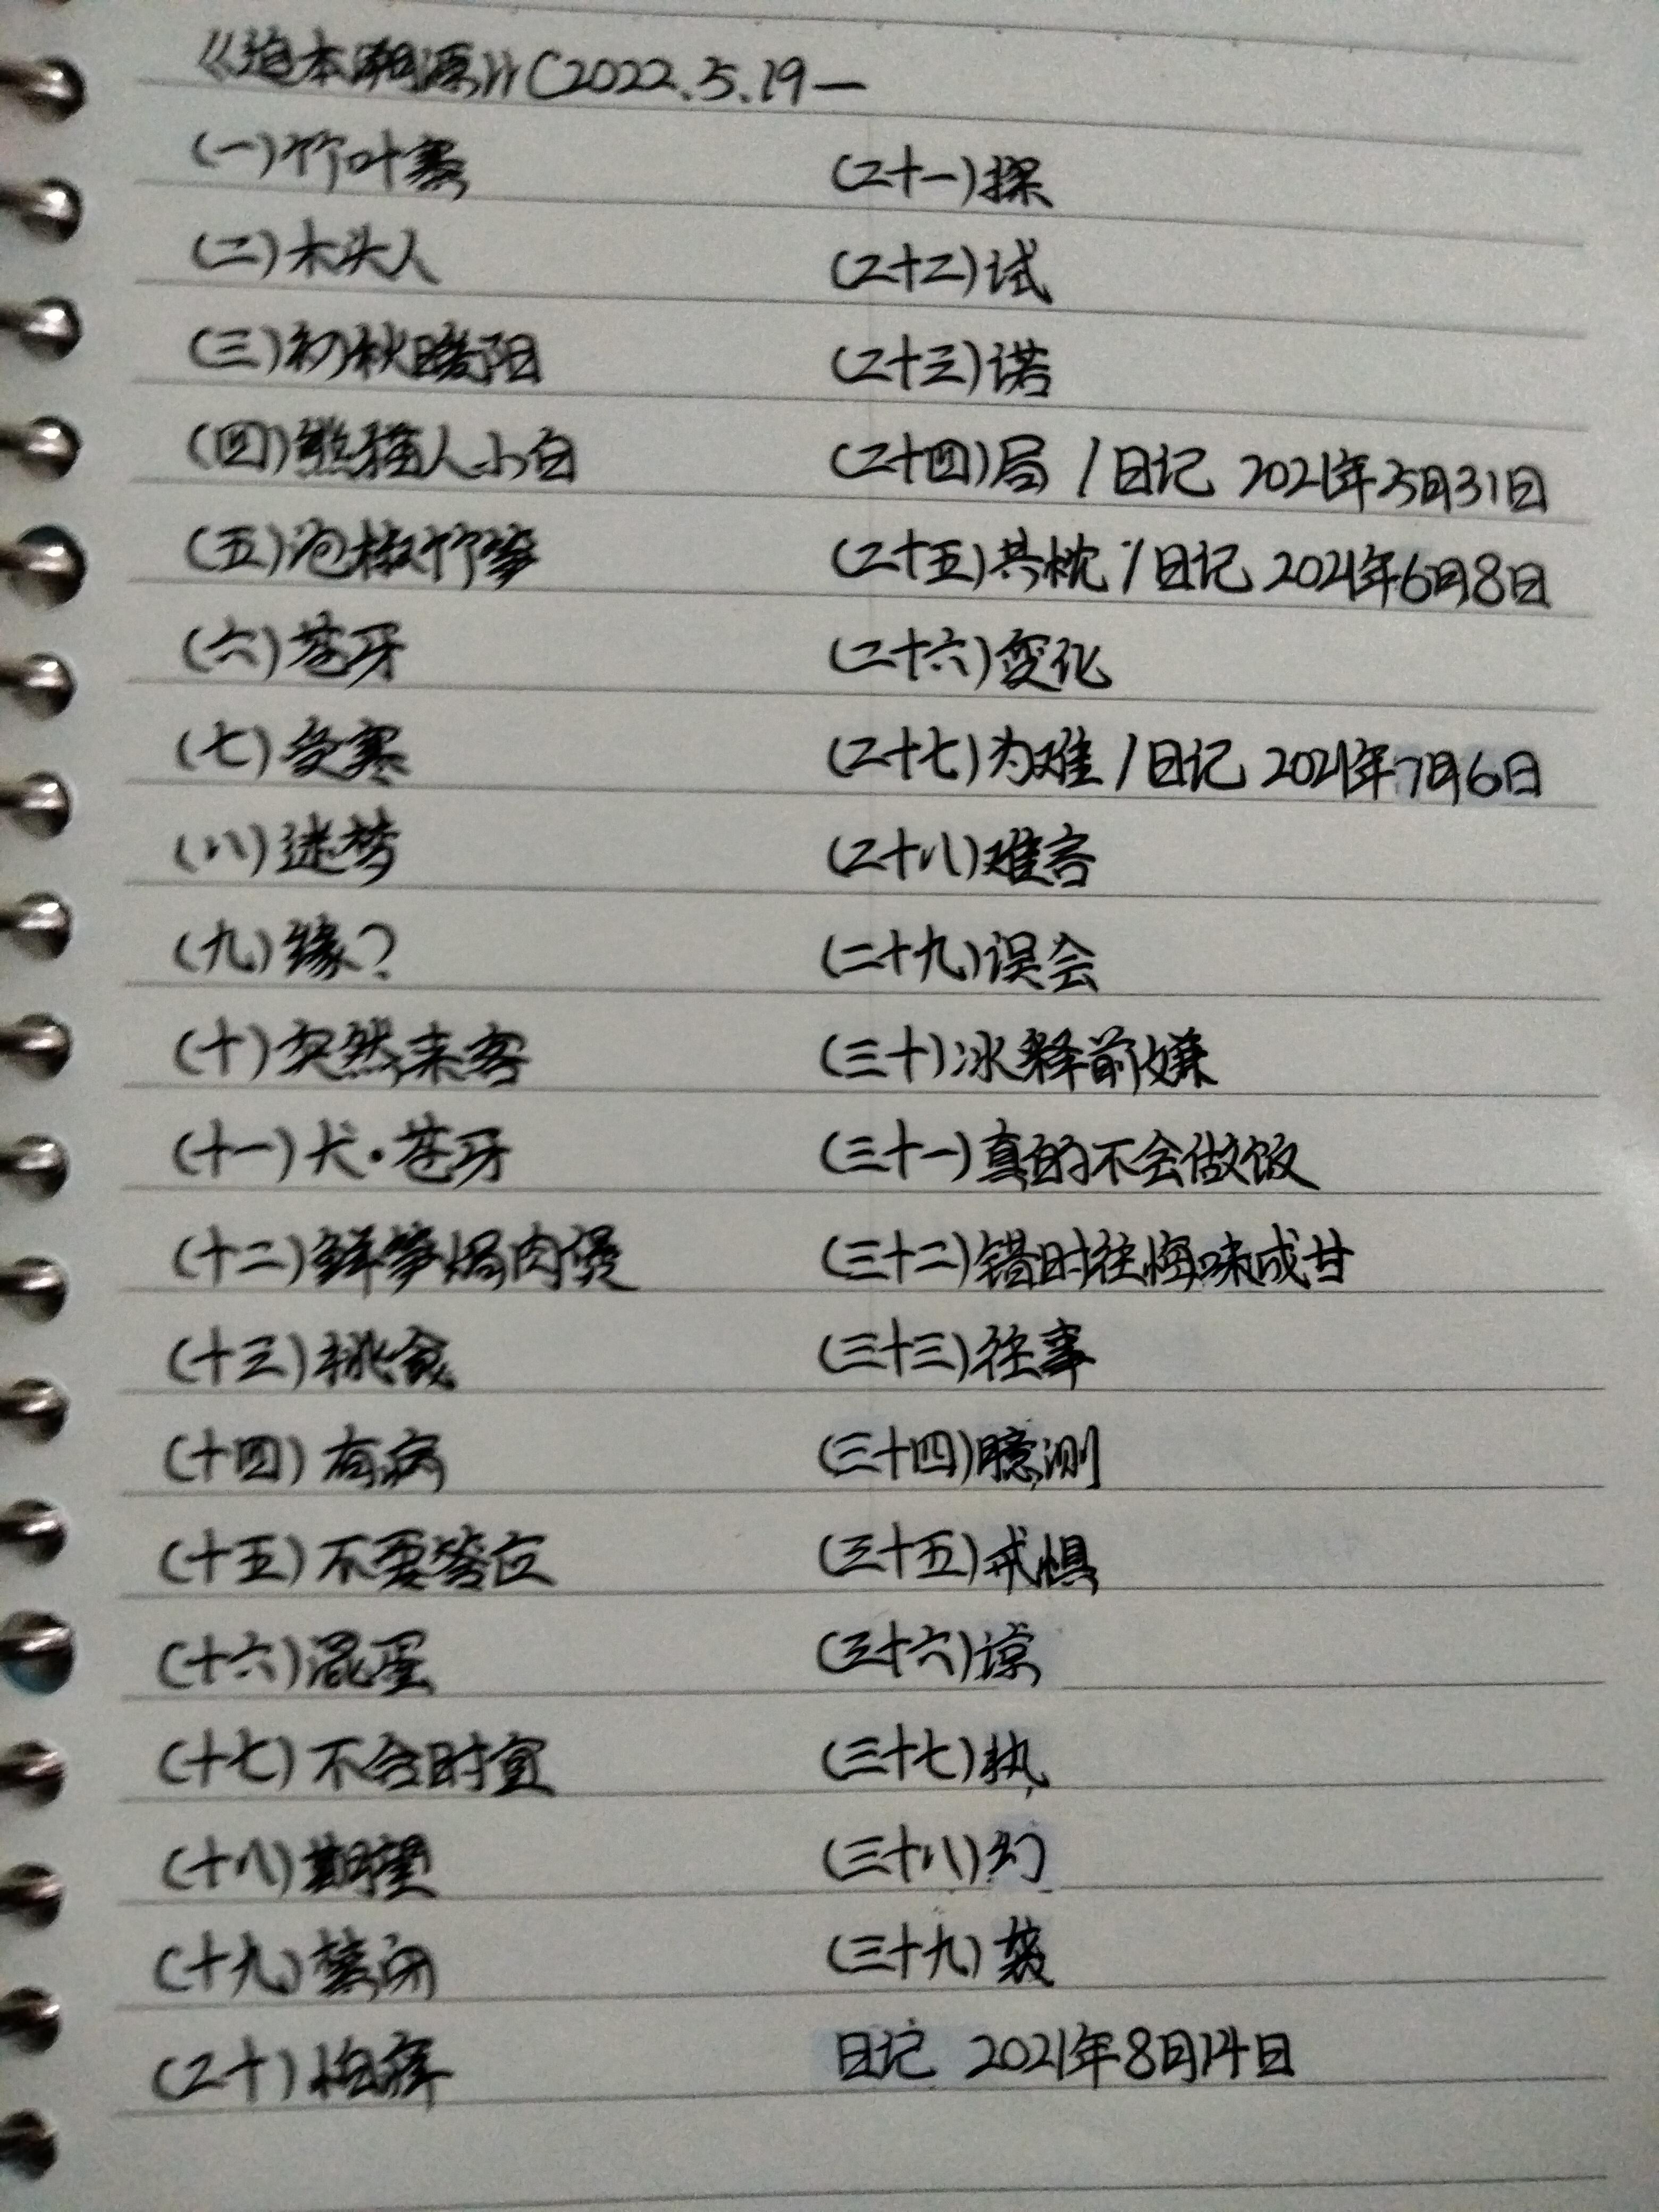 《追本溯源》(2022.5.19—
(一)竹叶寨
(二)木头人
(三)初秋暖阳
(四)熊猫人小白
(五)泡椒竹笋
(六)苍牙
(七)受寒
(八)迷梦
(九)缘?
(十)突然来客
(十一)犬·苍牙
(十二)鲜笋焗肉煲
(十三)挑食
(十四)有病
(十五)不要答应
(十六)混蛋
(十七)不合时宜
(十八)期望
(十九)禁闭
(二十)
(二十一)探
(二十二)试
(二十三)诺
(二十四)局 / 日记 2021年5月31日
(二十五)共枕 / 日记 2021年6月8日
(二十六)变化
(二十七)为难 / 日记 2021年7月6日
(二十八)难言
(二十九)误会
(三十)冰释前嫌
(三十一)真的不会做饭
(三十二)错时往悔味成甘
(三十三)往事
(三十四)臆测
(三十五)戒惧
(三十六)谅
(三十七)执
(三十八)幻
(三十九)袭
日记 2021年8月14日